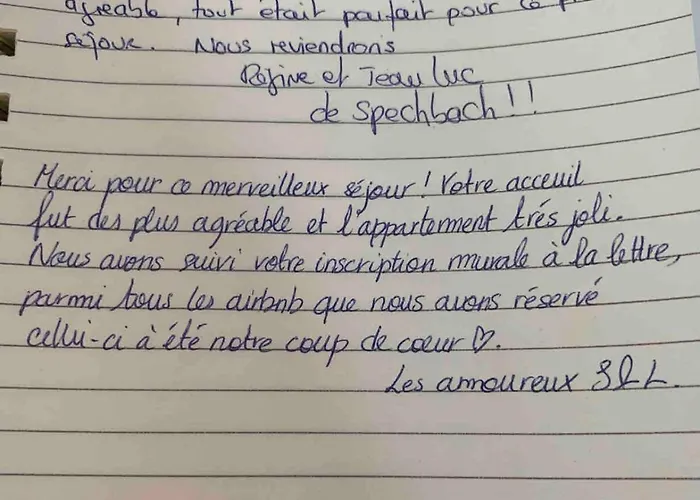 agreable, tout était parfait pour ce
séjour. Nous reviendrons
Régine et Jean Luc
de Spechbach !!
Merci pour ce merveilleux séjour ! Votre acceuil
fut des plus agréable et l'appartement trés joli.
Nous avons suivi votre inscription murale à la lettre,
parmi tous les airbnb que nous avons réservé
cellui-ci à été notre coup de coeur ♡.
Les amoureux